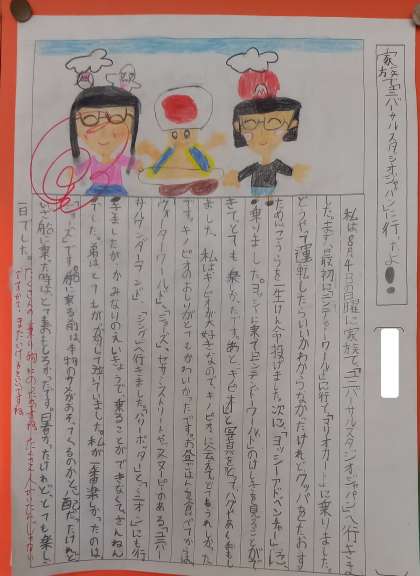 家族でユニバーサルスタジオジャパンに行ったよ!!
私は8月4日の日曜に家族で「ユニバーサルスタジオジャパン」へ行きま
した。まず、最初に「ニンテンドーワールド」に行き「マリオカート」に乗りました。
どうやって運転したらいいかわからなかったけれどクッパをたおす
ためにこうらを一生けん命投げました。次に「ヨッシーアドベンチャー」に
乗りました。ヨッシーに乗ってニンテンドーワールドのけしきを見ることがで
きて、とても楽しかったです。あとキノピオと写真をとって、ハグやあくしゅも
ました。私はキノピオが大好きなのでキノピオに会えてとてもうれしかった
です。キノピオのおしりがとてもかわいかったです。お昼ごはんを食べてからは
「ウォーターワールド」、「ジョーズ」、セサミストリートやスヌーピーのある「ユニバー
サルワンダーランド」、「シング」へ行きました。「ハリーポッター」と「ミニオン」にも行
きましたがかみなりのえいきょうで乗ることができなくて、ざんねん
でした。弟はとてもがっかりして泣いていました。私が一番楽しかったのは
「ジョーズ」です。船に乗る前は本物のサメがおそってくるのかと心配だったけれど
いざ船に乗った時はとてもおもしろかったです。日暑かったけれど、とても楽しい
一日でした。